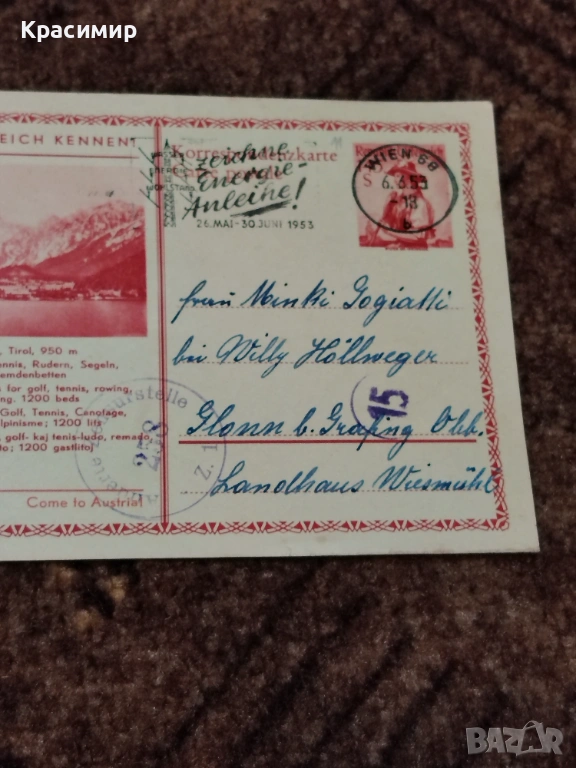 Красимир
EICH KENNEN
Korrespondenzkarte
Carte postale
zeichne
Energie-
Anleihe!
26. MAI - 30. JUNI 1953
WIEN 68
6.6.53
-18
b
S
, Tirol, 950 m
nnis, Rudern, Segeln,
emdenbetten
s for golf, tennis, rowing,
ng. 1200 beds
Golf, Tennis, Canotage,
lpinisme; 1200 lits
, golf- kaj tenis-ludo, remado,
to; 1200 gastlitoj
Come to Austria!
Zensurstelle
258
Z. 1
Frau Minki Gogiatti
bei Willy Höllweger
15
Glonn b. Grafing Obb.
Landhaus Wiesmühl
BAZAR